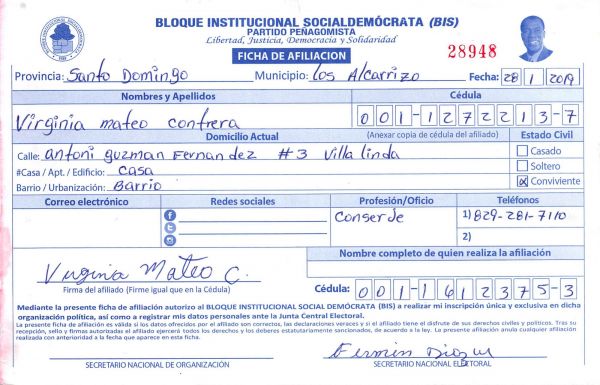 BLOQUE INSTITUCIONAL SOCIALDEMÓCRATA (BIS)
PARTIDO PEÑAGOMISTA
Libertad, Justicia, Democracia y Solidaridad
FICHA DE AFILIACION
28948
Provincia: Santo Domingo Municipio: Los Alcarrizo Fecha: 28 1 2019
Nombres y Apellidos Cédula
Virginia mateo contrera 001-1272213-7
Domicilio Actual (Anexar copia de cédula del afiliado) Estado Civil
Calle: antoni guzman Fernandez #3 Villa linda Casado
#Casa / Apt. / Edificio: casa Soltero
Barrio / Urbanización: Barrio Conviviente
Correo electrónico Redes sociales Profesión/Oficio Teléfonos
Conserde 1) 829-281-7110
2)
Nombre completo de quien realiza la afiliación
Virginia Mateo C.
Firma del afiliado (Firme igual que en la Cédula) Cédula: 001-1612375-3
Mediante la presente ficha de afiliación autorizo al BLOQUE INSTITUCIONAL SOCIAL DEMÓCRATA (BIS) a realizar mi inscripción única y exclusiva en dicha
organización política, así como a registrar mis datos personales ante la Junta Central Electoral.
La presente ficha de afiliación es válida si los datos ofrecidos por el afiliado son correctos, las declaraciones veraces y si el afiliado tiene el disfrute de sus derechos civiles y políticos. Tras su
recepción, sello y firmas autorizadas el afiliado ejercerá todos los derechos y los deberes estatutariamente sancionados, de acuerdo a la ley. La presente afiliación anula cualquier afiliación
realizada con anterioridad a la fecha que aparece en esta ficha.
Fermin
SECRETARIO NACIONAL DE ORGANIZACIÓN SECRETARIO NACIONAL ELECTORAL